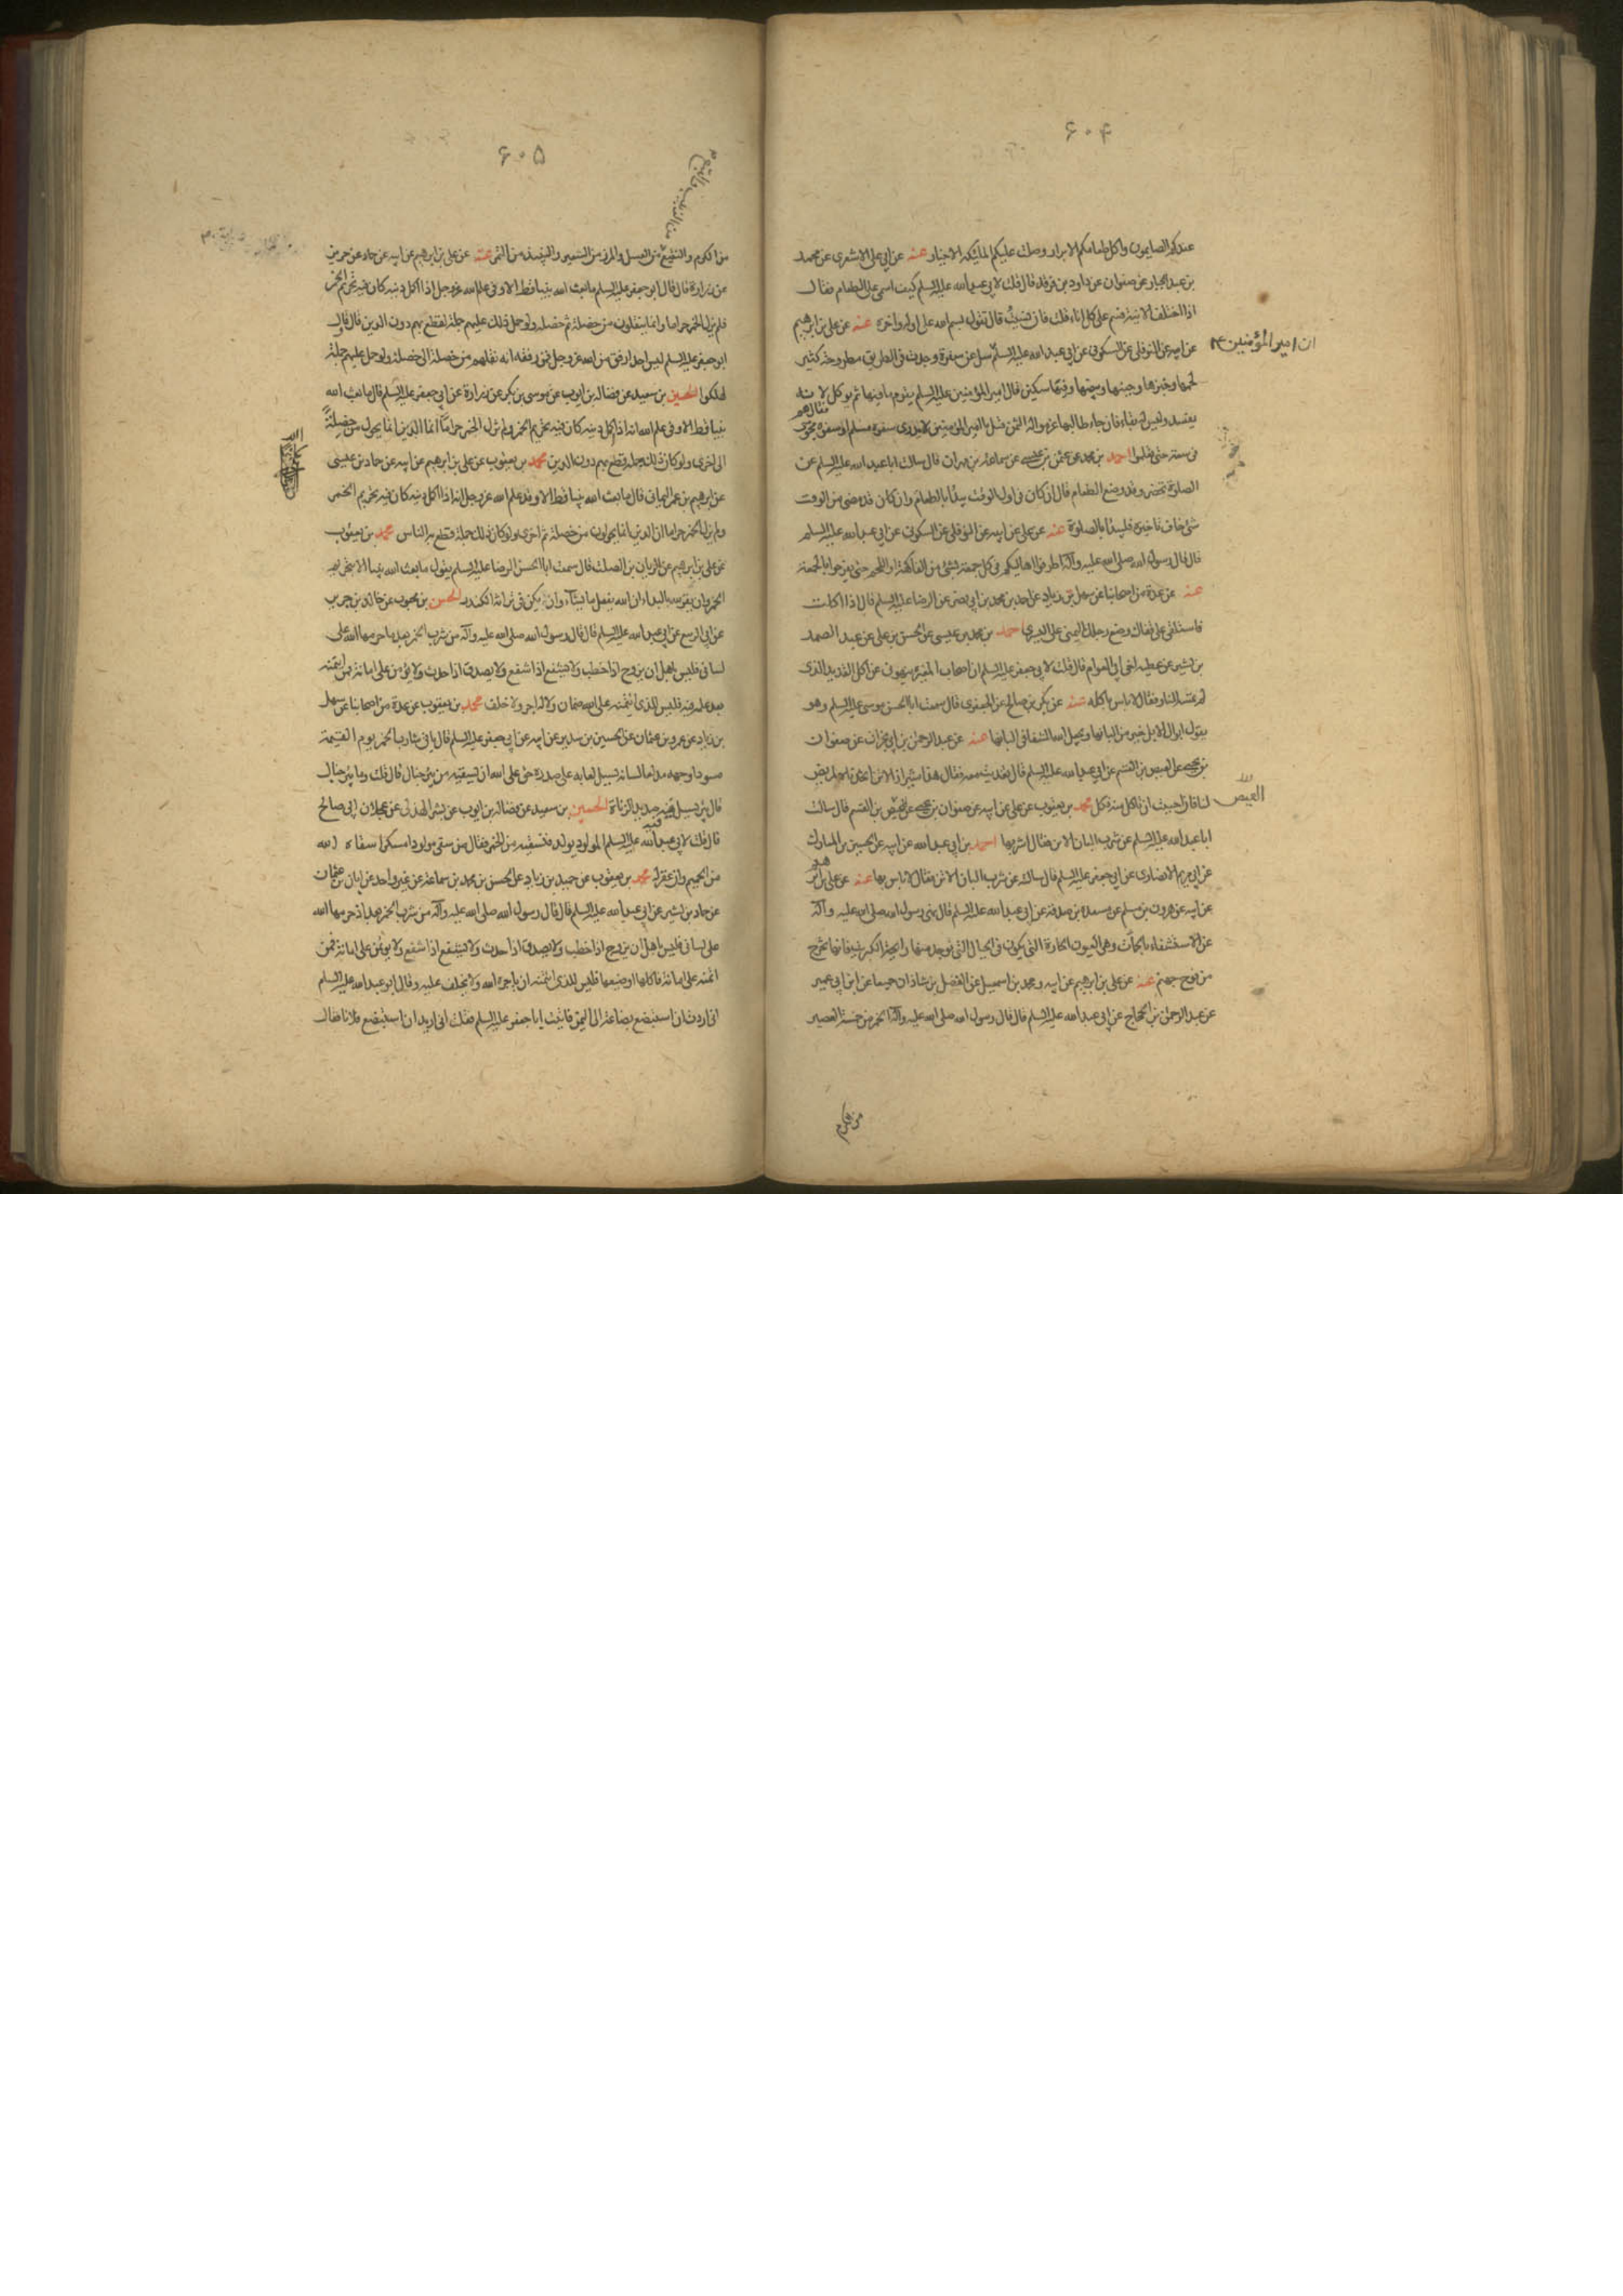 ۶۰۴
عندكم الصايمون واكل طعامكم الابرار وصلت عليكم الملئكة الاخيار عنه عن ابي علي الاشعري عن محمد
بن عبد الجبار عن صفوان عن داود بن فرقد قال قلت لابي عبد الله عليه السلم كيف اسمي على الطعام فقال
اذا اختلف الانية فسم على كل اناء قلت فان نسيت قال تقول بسم الله على اوله واخره عنه عن علي بن ابرهيم
عن ابيه عن النوفلي عن السكوني عن ابي عبد الله عليه السلم سئل عن سفرة وجدت في الطريق مطروحة كثير
ان امير المؤمنين ع
لحمها وخبزها وجبنها وبيضها وفيها سكين فقال امير المؤمنين عليه السلم يقوم ما فيها ثم يوكل لانه
يفسد وليس له بقاء فان جاء طالبها غرموا له الثمن قيل يا امير المؤمنين لا ندري سفرة مسلم او سفرة مجوسي
فقال هم
في سعة حتى يعلموا احمد بن محمد عن عثمن بن عيسى عن سماعة بن مهران قال سالت ابا عبد الله عليه السلم عن
الصلوة تحضر وقد وضع الطعام قال ان كان في اول الوقت يبدأ بالطعام وان كان قد مضى من الوقت
شئ خاف تاخيره فليبدأ بالصلوة عنه عن علي عن ابيه عن النوفلي عن السكوني عن ابي عبد الله عليه السلم
قال قال رسول الله صلى الله عليه وآله اطرفوا اهاليكم في كل جمعة بشئ من الفاكهة او اللحم حتى يفرحوا بالجمعة
عنه عن عدة من اصحابنا عن سهل بن زياد عن احمد بن محمد بن ابي نصر عن الرضا عليه السلم قال اذا اكلت
فاستلقي على قفاك وضع رجلك اليمنى على اليسرى احمد بن محمد بن عيسى عن الحسن بن علي عن عبد الصمد
بن بشير عن عطية اخي ابي العوام قال قلت لابي جعفر عليه السلم ان اصحاب المغيرة ينهون عن اكل القديد الذي
لم تمسه النار فقال لا باس باكله عنه عن بكر بن صالح عن الجعفري قال سمعت ابا الحسن موسى عليه السلم وهو
يقول ابوال الابل خير من البانها ويجعل الله الشفاء في البانها عنه عن عبد الرحمن بن ابي نجران عن صفوان
بن يحيى عن العيص بن القسم عن ابي عبد الله عليه السلم قال تغديت معه فقال هذا شيراز الاتن اتخذناه لمريض
لنا فان احببت ان تاكل منه فكل محمد بن يعقوب عن علي عن ابيه عن صفوان بن يحيى عن العيص بن القسم قال سالت
العيص
ابا عبد الله عليه السلم عن شرب البان الاتن فقال اشربها احمد بن ابي عبد الله عن ابيه عن الحسين بن المبارك
عن ابي مريم الانصاري عن ابي جعفر عليه السلم قال سالته عن شرب البان الاتن فقال لا باس بها عنه عن علي بن ابر
هيم
عن ابيه عن هرون بن مسلم عن مسعدة بن صدقة عن ابي عبد الله عليه السلم قال نهى رسول الله صلى الله عليه وآله
عن الاستشفاء بالحمات وهي العيون الحارة التي تكون في الجبال التي توجد منها رايحة الكبريت فانها تخرج
من فوح جهنم عنه عن علي بن ابرهيم عن ابيه ومحمد بن اسمعيل عن الفضل بن شاذان جميعا عن ابن ابي عمير
عن عبد الرحمن بن الحجاج عن ابي عبد الله عليه السلم قال قال رسول الله صلى الله عليه وآله الخمر من خمسة العصير
من الكرم
۶۰۵
من الكرم والنقيع من العسل والمزر من الشعير والنبيذ من التمر عنه عن علي بن ابرهيم عن ابيه عن حماد عن حريز
عن زرارة قال قال ابو جعفر عليه السلم ما بعث الله نبيا قط الا وفي علم الله عز وجل اذا اكمل دينه كان فيه تحريم الخمر
فلم يزل الخمر حراما وانما ينقلون من خصلة ثم خصلة ولو حمل ذلك عليهم جملة لقطع بهم دون الدين قال قال
ابو جعفر عليه السلم ليس احد ارفق من الله عز وجل فمن رفقه انه نقلهم من خصلة الى خصلة ولو حمل عليهم جملة
لهلكوا الحسين بن سعيد عن فضالة بن ايوب عن موسى بن بكر عن زرارة عن ابي جعفر عليه السلم قال ما بعث الله
نبيا قط الا وفي علم الله انه اذا اكمل دينه كان فيه تحريم الخمر ولم تزل الخمر حراما انما الدين انما يحول من خصلة
الى اخرى ولو كان ذلك جملة قطع بهم دون الدين محمد بن يعقوب عن علي بن ابرهيم عن ابيه عن حماد بن عيسى
عن ابرهيم بن عمر اليماني قال ما بعث الله نبيا قط الا وقد علم الله عز وجل انه اذا اكمل دينه كان فيه تحريم الخمر
ولم يزل الخمر حراما ان الدين انما يحولون من خصلة ثم اخرى ولو كان ذلك جملة قطع بالناس محمد بن يعقوب
عن علي بن ابرهيم عن الريان بن الصلت قال سمعت ابا الحسن الرضا عليه السلم يقول ما بعث الله نبيا الا بتحريم
الخمر وان يقر لله بالبداء ان الله يفعل ما يشاء وان يكون في تراثه الكندر الحسن بن محبوب عن خالد بن جرير
عن ابي الربيع عن ابي عبد الله عليه السلم قال قال رسول الله صلى الله عليه وآله من شرب الخمر بعد ما حرمها الله على
لساني فليس باهل ان يزوج اذا خطب ولا يشفع اذا شفع ولا يصدق اذا حدث ولا يؤمن على امانة فمن ائتمنه
بعد علمه فيه فليس للذي ائتمنه على الله ضمان ولا له اجر ولا خلف محمد بن يعقوب عن عدة من اصحابنا عن سهل
بن زياد عن عمرو بن عثمان عن الحسين بن سدير عن ابيه عن ابي جعفر عليه السلم قال ياتي شارب الخمر يوم القيمة
مسودا وجهه مدلعا لسانه يسيل لعابه على صدره حق على الله ان يسقيه من بئر خبال قال قلت وما بئر خبال
قال بئر يسيل فيه صديد الزناة الحسين بن سعيد عن فضالة بن ايوب عن بشر الهذلي عن عجلان ابي صالح
قال قلت لابي عبد الله عليه السلم المولود يولد فنسقيه من الخمر فقال من سقى مولودا مسكرا سقاه الله
من الحميم وان غفر له محمد بن يعقوب عن حميد بن زياد عن الحسن بن محمد بن سماعة عن غير واحد عن ابان بن عثمان
عن حماد بن بشير عن ابي عبد الله عليه السلم قال قال رسول الله صلى الله عليه وآله من شرب الخمر بعد اذ حرمها الله
على لساني فليس باهل ان يزوج اذا خطب ولا يصدق اذا حدث ولا يشفع اذا شفع ولا يؤتمن على امانة فمن
ائتمنه على امانة فاكلها او ضيعها فليس للذي ائتمنه ان ياجره الله ولا يخلف عليه وقال ابو عبد الله عليه السلم
اني اردت ان استبضع بضاعة الى اليمن فاتيت ابا جعفر عليه السلم فقلت اني اريد ان استبضع فلانا فقال